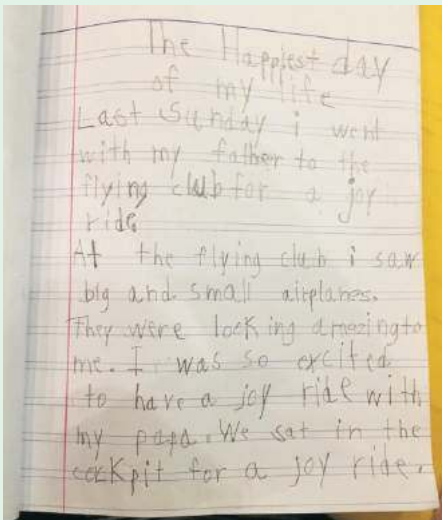 The Happiest day
of my life
Last Sunday i went
with my father to the
flying club for a joy
ride
At the flying club i saw
big and small airplanes.
They were looking amazing to
me. I was so excited
to have a joy ride with
my papa. We sat in the
cockpit for a joy ride.